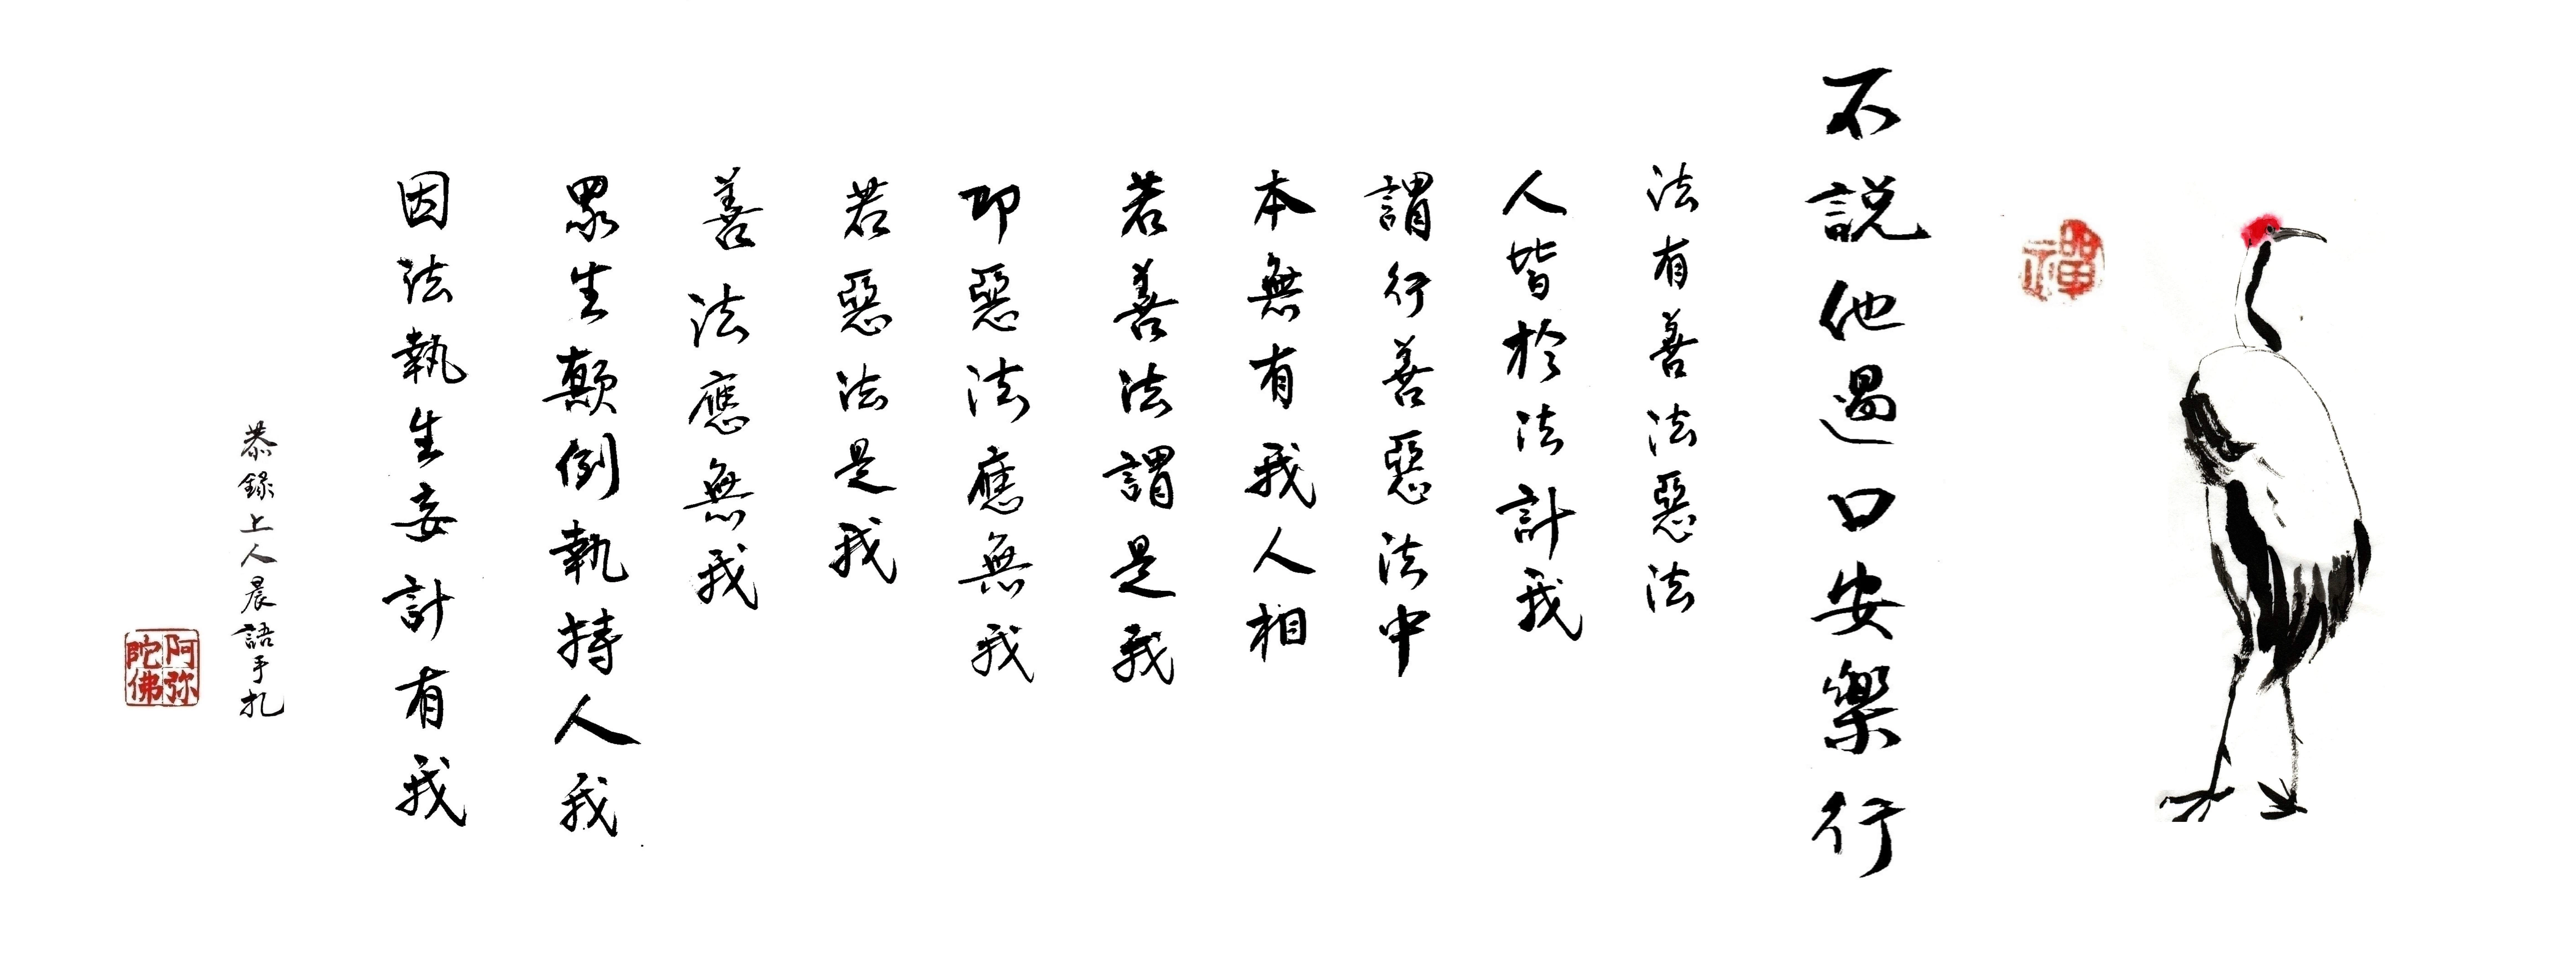 禪
不説他過口安樂行
法有善法惡法
人皆於法計我
謂行善惡法中
本無有我人相
若善法謂是我
即惡法應無我
若惡法是我
善法應無我
眾生顛倒執持人我
因法執生妄計有我
恭錄上人晨語手札
阿弥陀佛